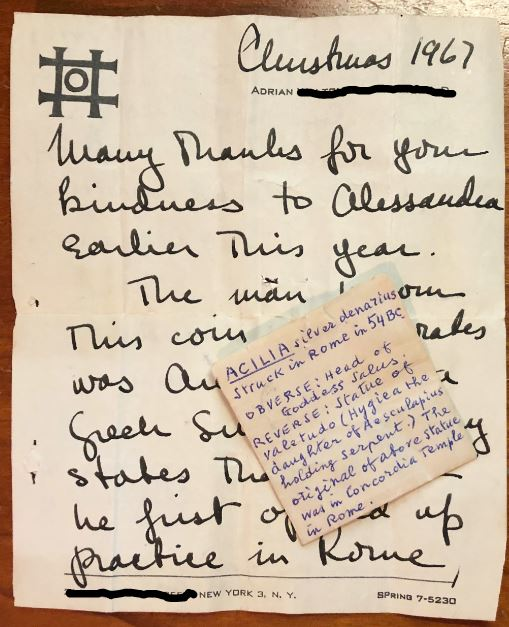 Christmas 1967
ADRIAN
Many Thanks for your
kindness to Alessandra
Earlier This year.
The man
This coin
was
Greek
states
he first up
practice in Rome
NEW YORK 3, N. Y.
SPRING 7-5230
ACILIA silver denarius
struck in Rome in 54 BC
OBVERSE: Head of
Goddess Salus;
REVERSE: Statue of
Valetudo (Hygiea the
daughter of Aesculapius
holding serpent.) The
original of above statue
was in Concordia Temple
in Rome.